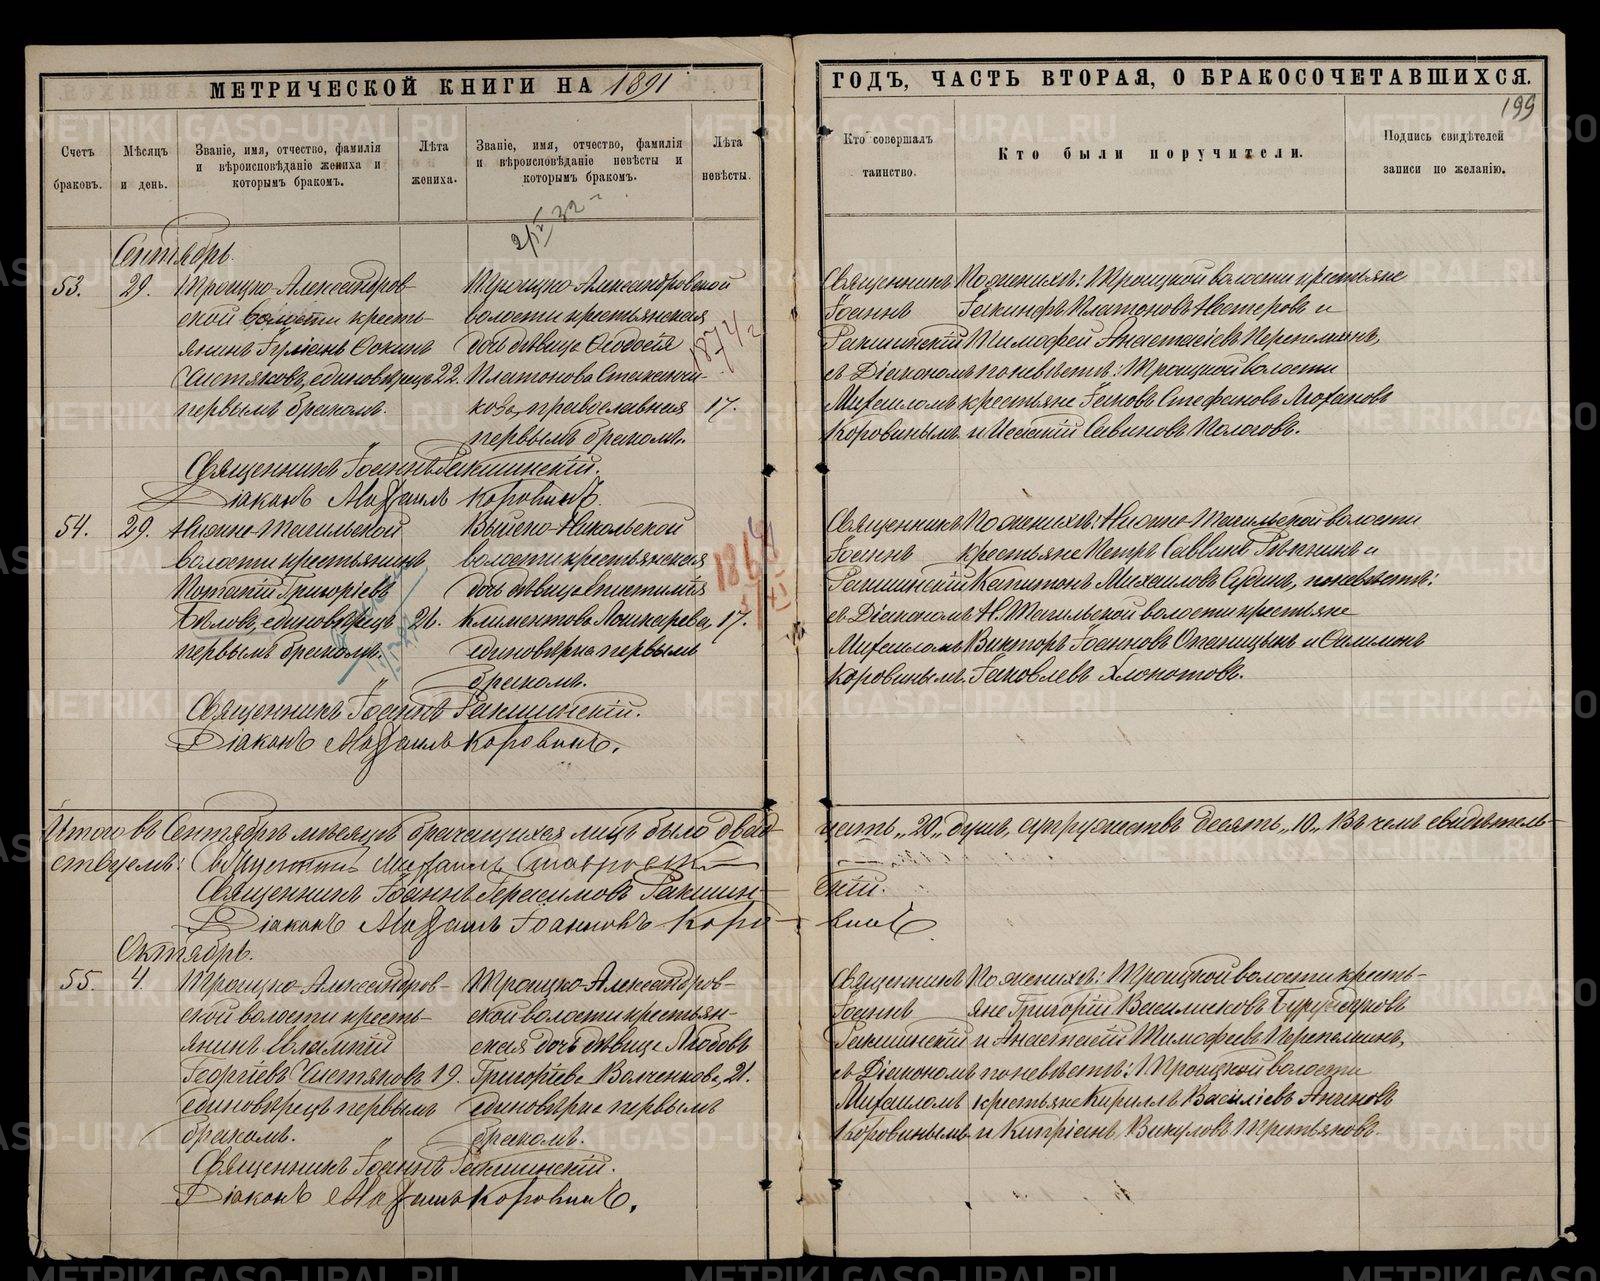 МЕТРИЧЕСКОЙ КНИГИ НА 1891
ГОДЪ, ЧАСТЬ ВТОРАЯ, О БРАКОСОЧЕТАВШИХСЯ.
199
Счетъ браковъ.
Мѣсяцъ и день.
Званіе, имя, отчество, фамилія
и вѣроисповѣданіе жениха и
которымъ бракомъ.
Лѣта жениха.
Званіе, имя, отчество, фамилія
и вѣроисповѣданіе невѣсты и
которымъ бракомъ.
Лѣта невѣсты.
Кто совершалъ таинство.
Кто были поручители.
Подпись свидѣтелей
записи по желанію.
Сентябрь.
53.
29.
Троицко-Александров-
ской волости кресть-
янинъ Іуліанъ Фокинъ
Чистяковъ, единовѣрецъ 22.
первымъ бракомъ.
Троицко-Александровской
волости крестьянская
дочь дѣвица Ѳеодосія
Платонова
православная 17.
первымъ бракомъ.
1874 г
Священникъ
Іоаннъ
Гакшинскій
съ Діакономъ
Михаиломъ
Коровинымъ.
По женихѣ: Троицкой волости крестьяне
Іакинфъ Платоновъ Нестеровъ и
Тимофей Анастасіевъ Перепелкинъ,
по невѣстѣ: Троицкой волости
крестьяне Іаковъ Стефановъ
и Исакій Савиновъ Пологовъ.
Священникъ Іоаннъ Гакшинскій.
Діаконъ Михаилъ Коровинъ
54.
29.
Нижне-Тагильской
волости крестьянинъ
Григоріевъ
Бѣловъ, единовѣрецъ 21.
первымъ бракомъ.
Выйско-Никольской
волости крестьянская
дочь дѣвица Епистимія
Климентова Пошкарева, 17.
единовѣрка первымъ
бракомъ.
Священникъ
Іоаннъ
Гакшинскій
съ Діакономъ
Михаиломъ
Коровинымъ.
По женихѣ: Нижне-Тагильской волости
крестьяне Петръ Саввинъ и
Капитонъ Михаиловъ по невѣстѣ:
Н. Тагильской волости крестьяне
Викторъ Іоанновъ и Филимонъ
Іаковлевъ Хлопотовъ.
Священникъ Іоаннъ Гакшинскій.
Діаконъ Михаилъ Коровинъ.
Итого въ Сентябрѣ мѣсяцѣ брачащихся лицъ было двад-
цать „20„ душъ, супружествъ десять „10„ Въ чемъ свидѣтель-
ствуемъ: Михаилъ
Священникъ Іоаннъ Герасимовъ Гакшин-
скій.
Діаконъ Михаилъ Іоанновъ Коро-
винъ
Октябрь.
55.
4.
Троицко-Александров-
ской волости кресть-
янинъ Евлампій
Георгіевъ Чистяковъ 19.
единовѣрецъ первымъ
бракомъ.
Троицко-Александров-
ской волости крестьян-
ская дочь дѣвица Любовь
Григоріева Волченкова, 21.
единовѣрка первымъ
бракомъ.
Священникъ
Іоаннъ
Гакшинскій
съ Діакономъ
Михаиломъ
Коровинымъ.
По женихѣ: Троицкой волости кресть-
яне Григорій Васильковъ
и Анастасій Тимофеевъ Перепелкинъ,
по невѣстѣ: Троицкой волости
крестьяне Кириллъ Василіевъ
и Кипріанъ Викуловъ Третьяковъ.
Священникъ Іоаннъ Гакшинскій.
Діаконъ Михаилъ Коровинъ.
METRIKI.GASO-URAL.RU